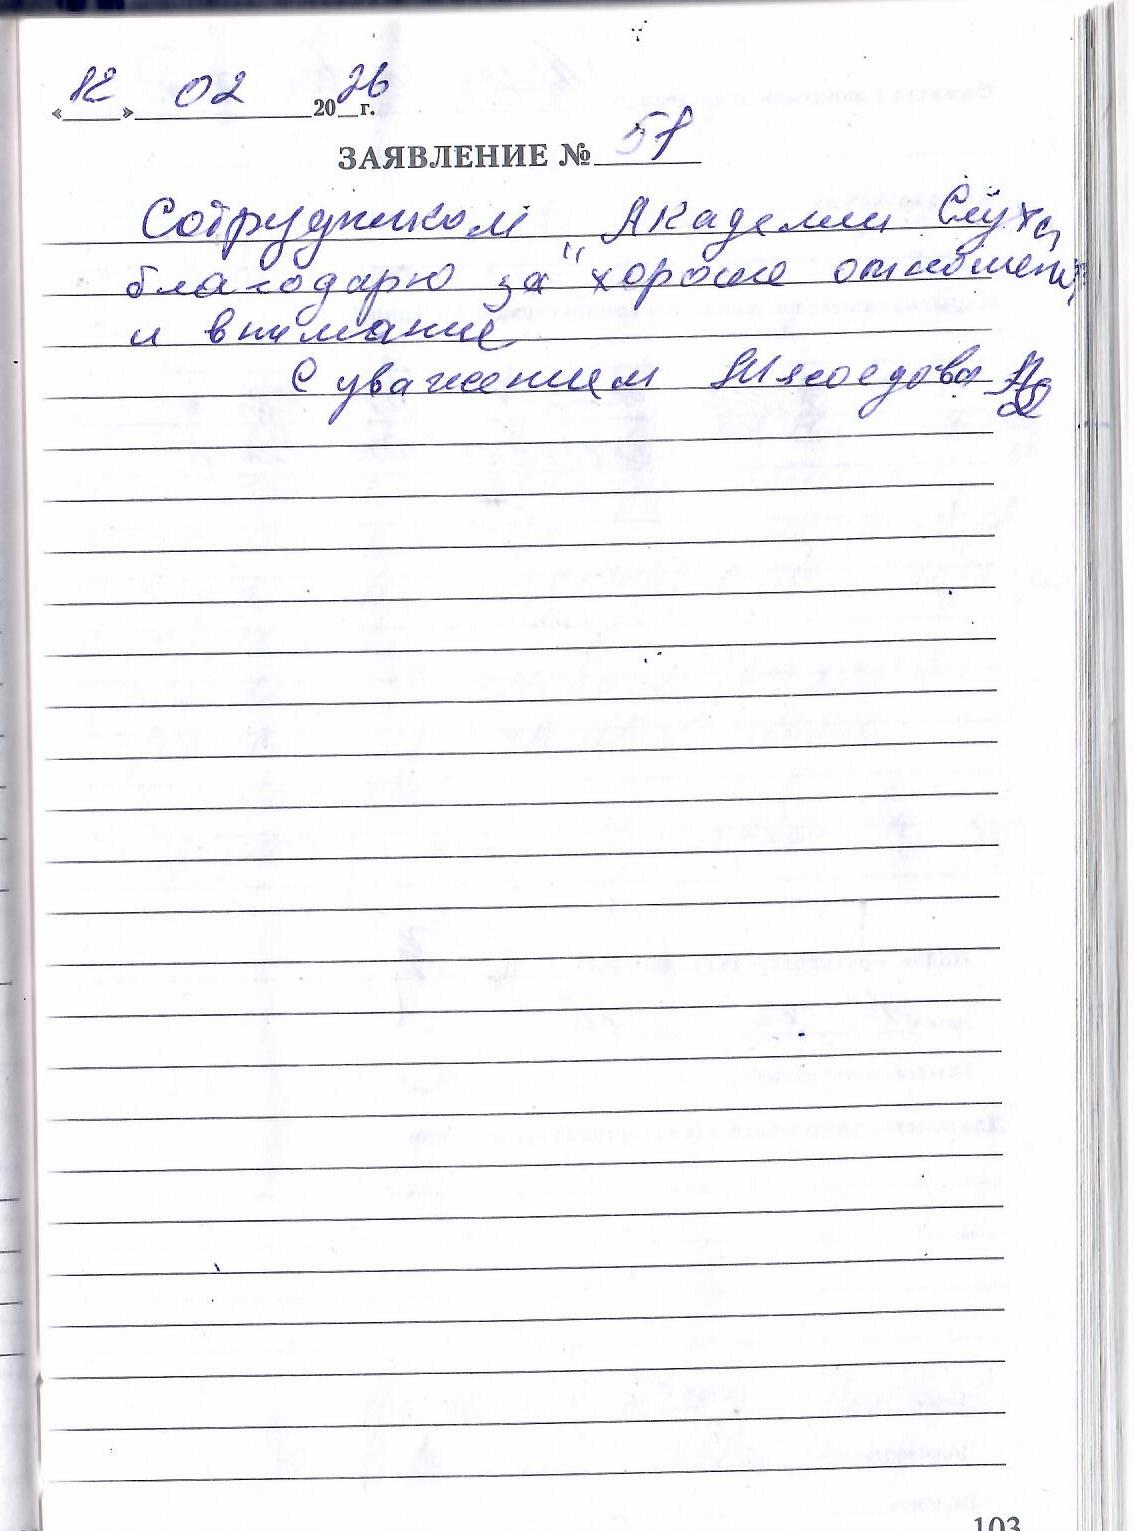 «12» 02 2026 г.
ЗАЯВЛЕНИЕ № 51
Сотрудникам "Академии Слуха"
благодарю за хороше отношение
и внимание
С уважением Мясоедова
103